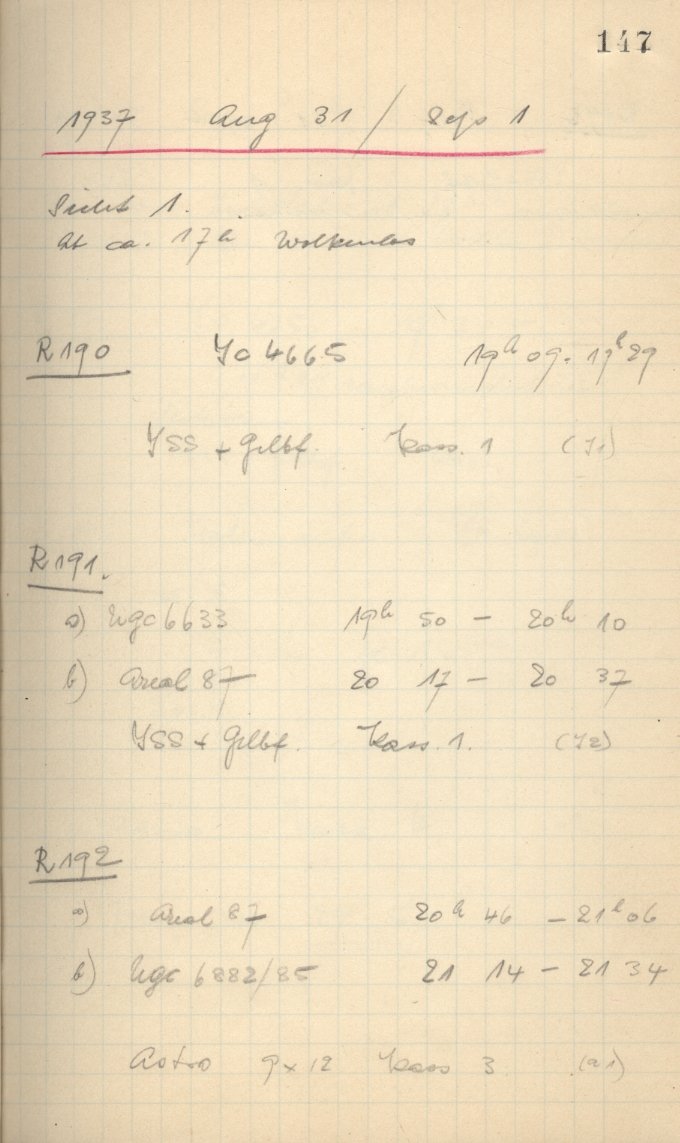 147
1937 Aug 31 / Sep 1
Sicht 1.
Ab ca. 17h Wolkenlos
R190 Jc 4665 19h 09 - 19h 29
JSS + Gelbf. Kass. 1 (J1)
R191.
a) Ngc 6633 19h 50 - 20h 10
b) Areal 87 20 17 - 20 37
JSS + Gelbf. Kass. 1. (J2)
R192
a) Areal 87 20h 46 - 21h 06
b) Ngc 6882/85 21 14 - 21 34
Astro 9x12 Kass 3 (a1)